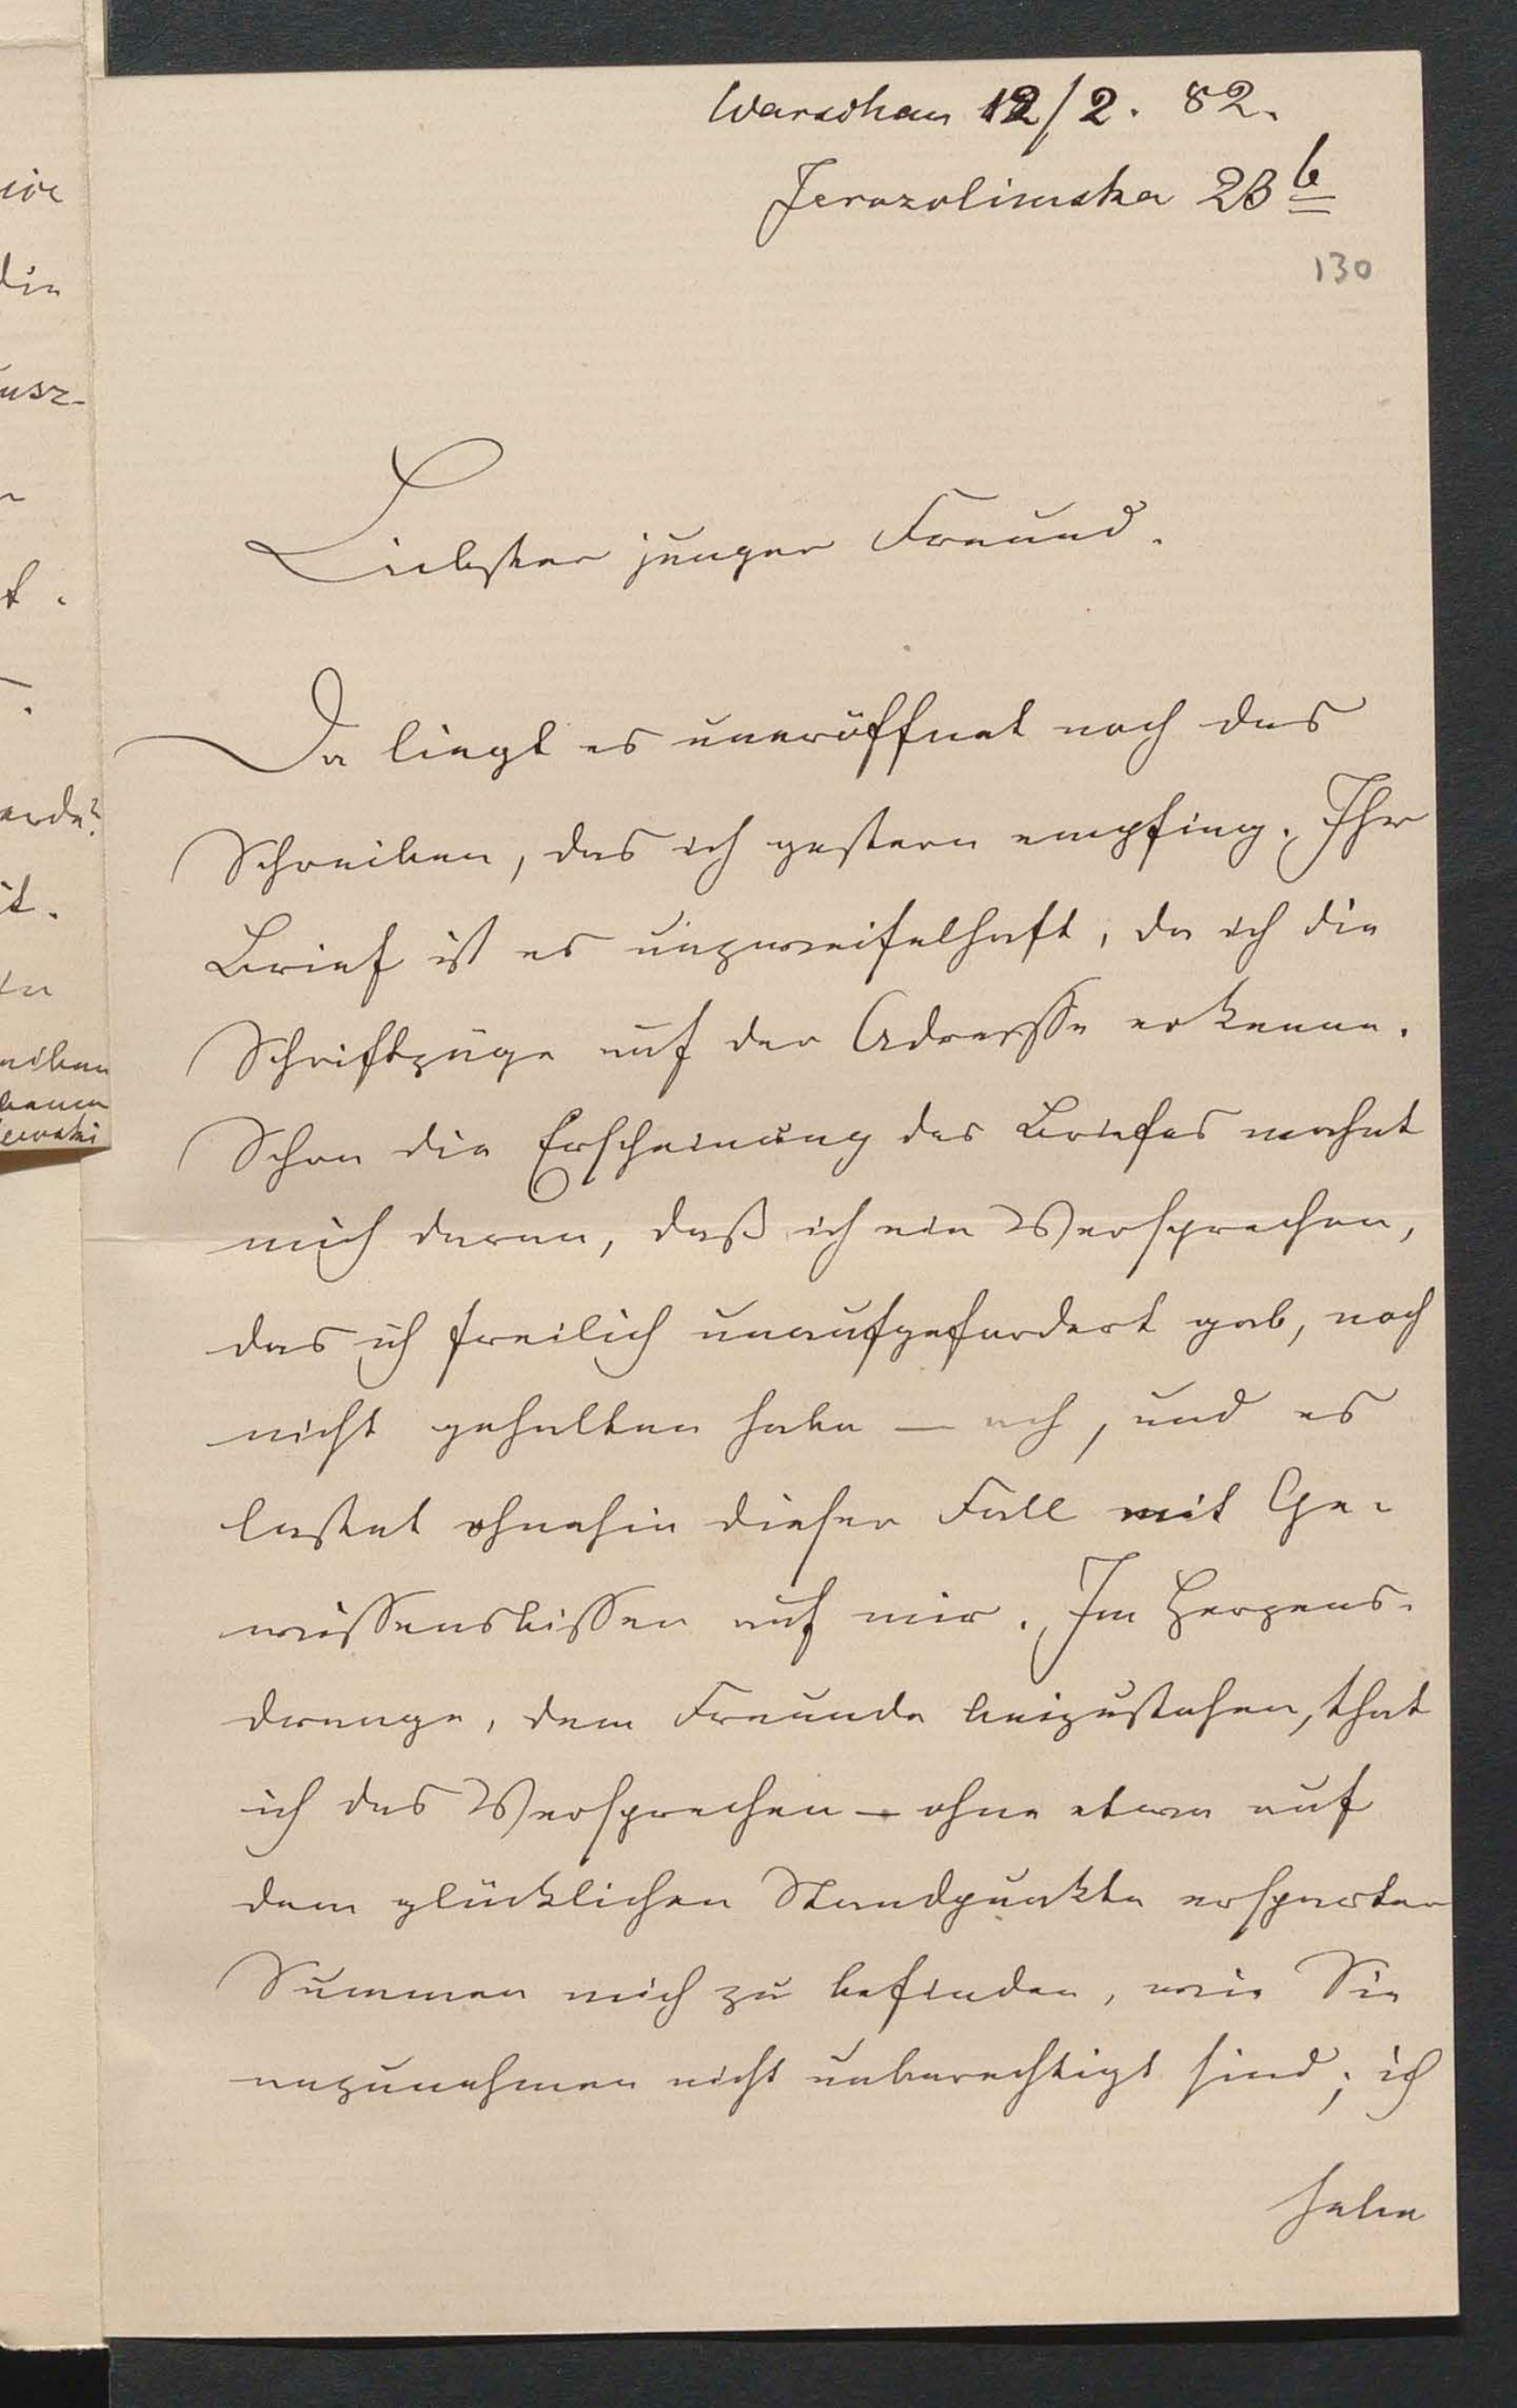 Warschau 12/2. 82.
Jerozolimska 23 b
130
Liebster junger Freund.
Da liegt es uneröffnet noch das
Schreiben, das ich gestern empfing. Ihr
Brief ist es unzweifelhaft, da ich die
Schriftzüge auf der Adresse erkenne.
Schon die Erscheinung des Briefes mahnt
mich daran, daß ich ein Versprechen,
das ich freilich unaufgefordert gab, noch
nicht gehalten habe — ach, und es
lastet ohnehin dieser Fall mit Ge-
wissensbissen auf mir. Im Herzens-
drange, dem Freunde beizustehen, that
ich das Versprechen — ohne etwa auf
dem glücklichen Standpunkte ersparter
Summen mich zu befinden, wie Sie
anzunehmen nicht unberechtigt sind; ich
habe